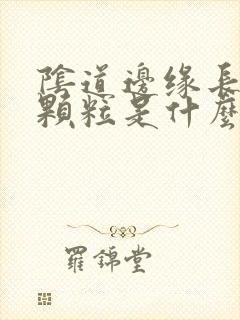 陰道邊緣長
顆粒是什麼
羅錦堂